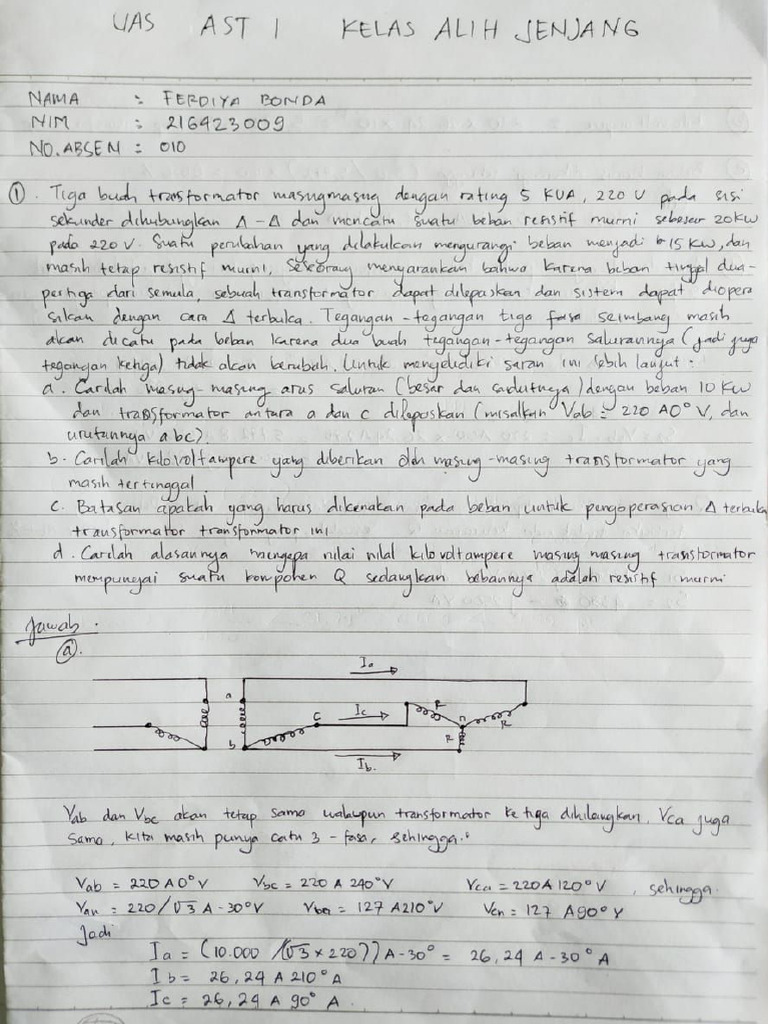 UAS AST 1 KELAS ALIH JENJANG
NAMA : FERDIYA BONDA
NIM : 216423009
NO. ABSEN : 010
① . Tiga buah transformator masingmasing dengan rating 5 KVA, 220 V pada sisi
sekunder dihubungkan Δ-Δ dan mencatu suatu beban resistif murni sebesar 20 kW
pada 220 V. Suatu perubahan yang dilakukan mengurangi beban menjadi 15 kW, dan
masih tetap resistif murni, Seseorang menyarankan bahwa karena beban tinggal dua-
pertiga dari semula, sebuah transformator dapat dilepaskan dan sistem dapat diopera
sikan dengan cara Δ terbuka. Tegangan-tegangan tiga fasa seimbang masih
akan dicatu pada beban karena dua buah tegangan-tegangan salurannya (jadi juga
tegangan ketiga) tidak akan berubah. Untuk menyelidiki saran ini lebih lanjut :
a. Carilah masing-masing arus saluran (besar dan sudutnya) dengan beban 10 kW
dan transformator antara a dan c dilepaskan (misalkan Vab = 220 A0° V, dan
urutannya abc).
b. Carilah kilovoltampere yang diberikan oleh masing-masing transformator yang
masih tertinggal
c. Batasan apakah yang harus dikenakan pada beban untuk pengoperasian Δ terbuka
transformator transformator ini
d. Carilah alasannya mengapa nilai nilai kilovoltampere masing masing transformator
mempunyai suatu komponen Q sedangkan bebannya adalah resistif murni
Jawab :
ⓐ.
Ia
a
C
Ic
R
n
R
R
b
Ib.
Vab dan Vbc akan tetap sama walaupun transformator ketiga dihilangkan, Vca juga
sama, kita masih punya catu 3-fasa, sehingga :
Vab = 220 A0° V Vbc = 220 A 240° V Vca = 220A 120° V , sehingga
Van = 220/√3 A -30° V Vbn = 127 A210° V Vcn = 127 A90° V
Jadi
Ia = (10.000 /(√3 x 220)) A-30° = 26,24 A -30° A
Ib = 26,24 A 210° A
Ic = 26,24 A 90° A .